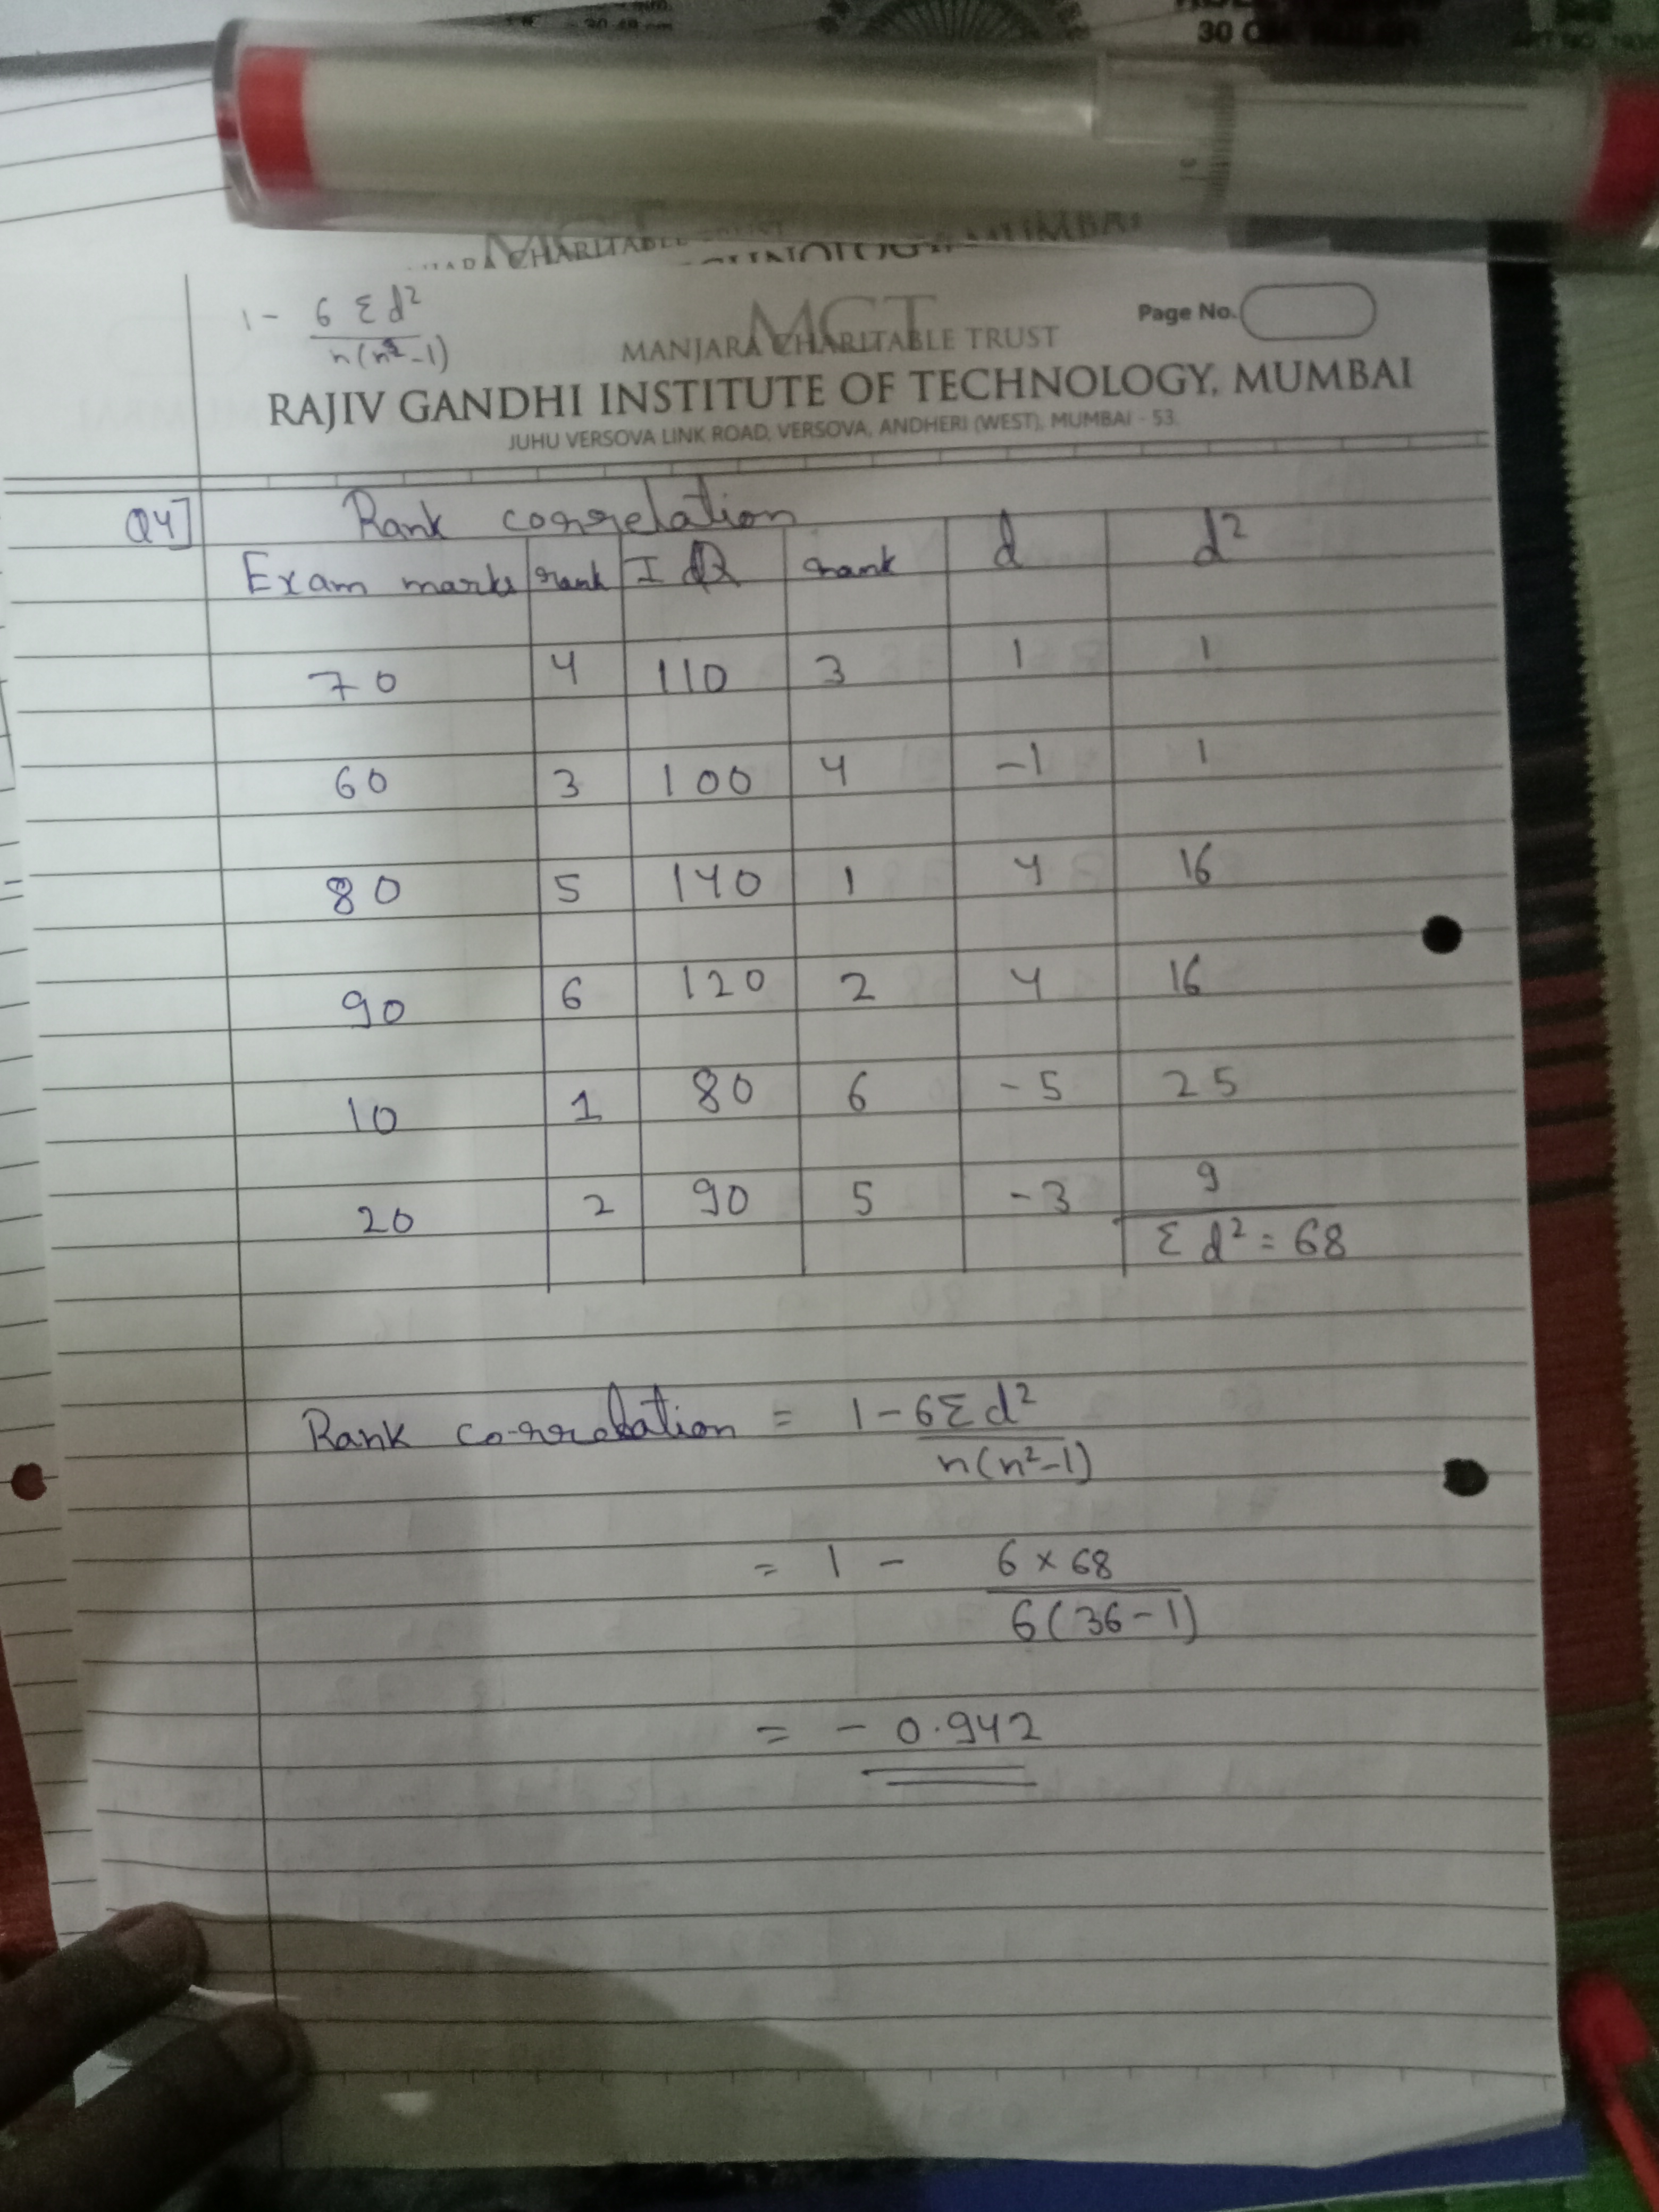 30 C
MANJARA CHARITABLE TRUST
1 - 6 Σd²
n(n²-1)
MCT
Page No.
MANJARA CHARITABLE TRUST
RAJIV GANDHI INSTITUTE OF TECHNOLOGY, MUMBAI
JUHU VERSOVA LINK ROAD, VERSOVA, ANDHERI (WEST), MUMBAI - 53.
Q4] Rank correlation
Exam marks rank IQ rank d d²
70 4 110 3 1 1
60 3 100 4 -1 1
80 5 140 1 4 16
90 6 120 2 4 16
10 1 80 6 -5 25
20 2 90 5 -3 9
Σd² = 68
Rank correlation = 1 - 6Σd²
n(n²-1)
= 1 - 6 × 68
6(36-1)
= - 0.942